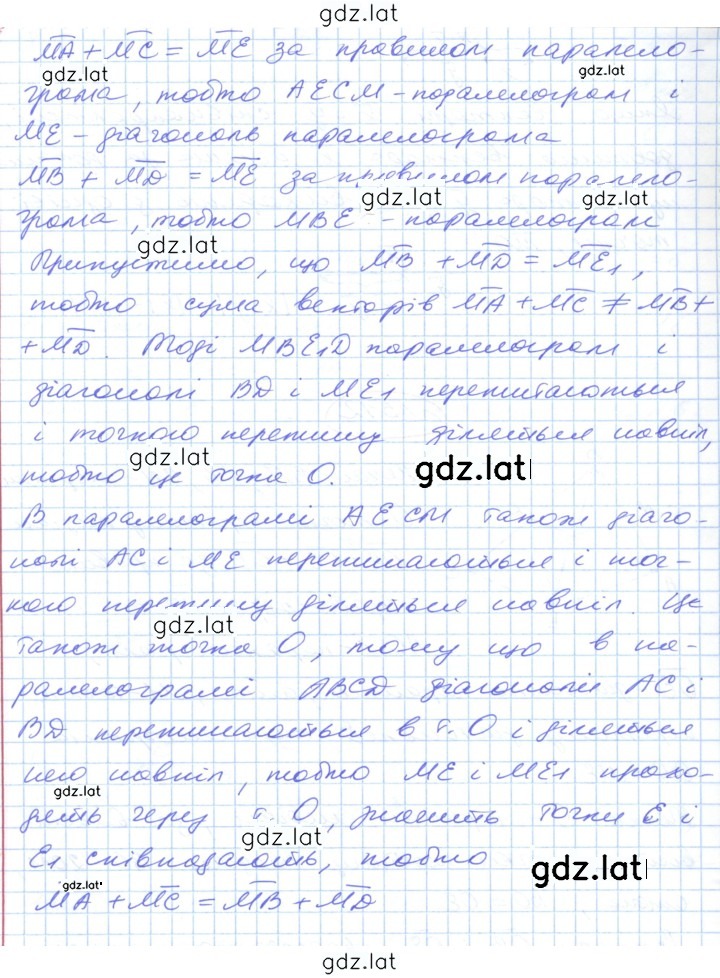 gdz.lat
MA + MC = ME за правилом парале-
gdz.lat gdz.lat
грама, тобто AECM - паралелограм і
ME - діагональ паралелограма
MB + MD = ME за правилом парале-
gdz.lat
грама, тобто MBE - паралелограм
gdz.lat
Припустимо, що MB + MD = ME1,
тобто сума векторів MA + MC ≠ MB +
+ MD. Тоді MBE1D паралелограм і
діагоналі BD і ME1 перетинаються
і точкою перетину діляться навпіл,
gdz.lat
тобто це точка O.
gdz.lat
В паралелограмі AECM також діаго-
налі AC і ME перетинаються і точ-
кою перетину діляться навпіл. Це
gdz.lat
також точка O, тому що в па-
ралелограмі ABCD діагоналі AC і
BD перетинаються в т. O і діляться
нею навпіл, тобто ME і ME1 прохо-
gdz.lat
дять через т. O, значить точки E і
gdz.lat
E1 співпадають, тобто
gdz.lat
gdz.lat
MA + MC = MB + MD
gdz.lat